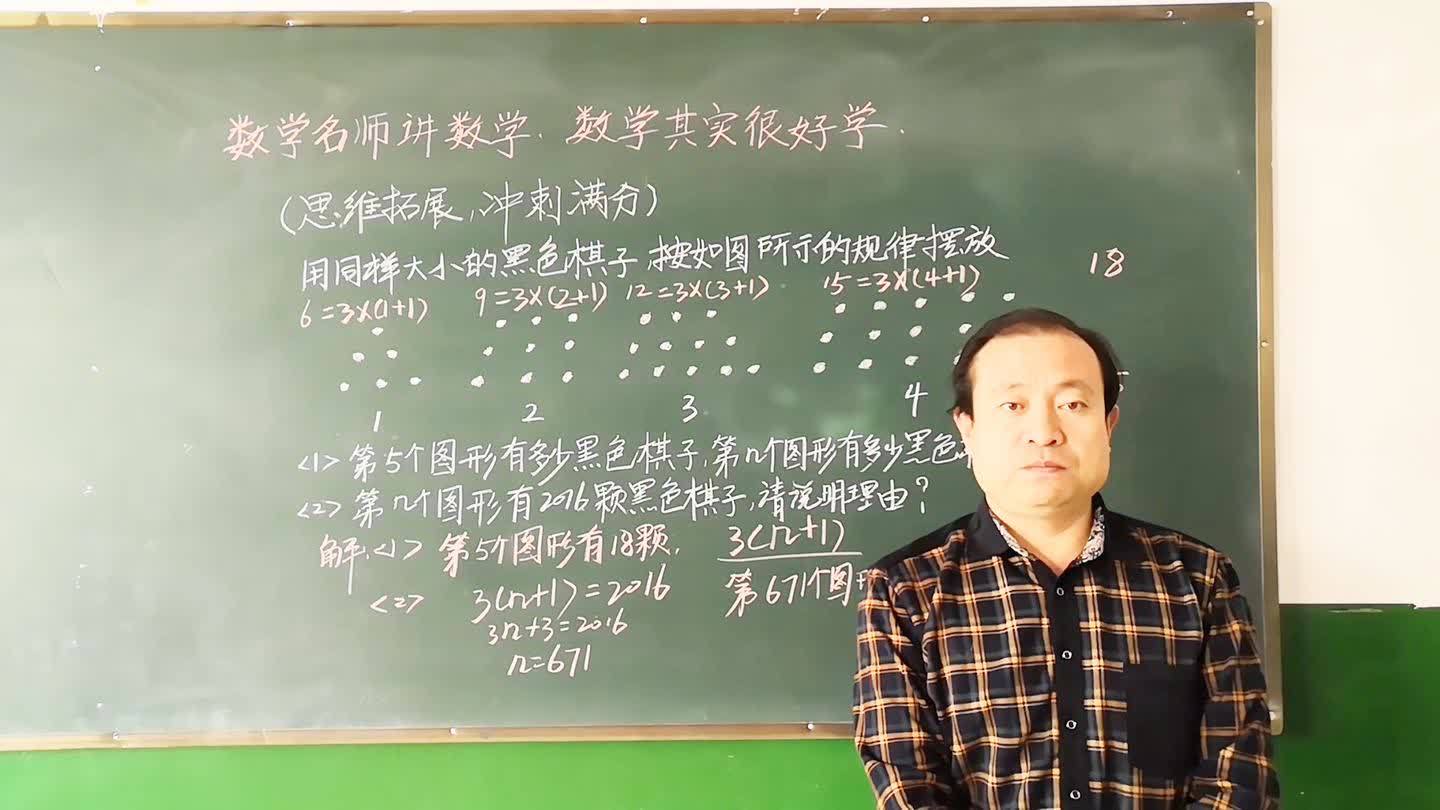 数学名师讲数学. 数学其实很好学.
(思维拓展,冲刺满分)
用同样大小的黑色棋子,按如图所示的规律摆放
6=3×(1+1) 9=3×(2+1) 12=3×(3+1) 15=3×(4+1) 18
1 2 3 4
<1> 第5个图形有多少黑色棋子,第n个图形有多少黑色
<2> 第几个图形有2016颗黑色棋子,请说明理由?
解:<1> 第5个图形有18颗, 3(n+1)
<2> 3(n+1)=2016 第671个图
3n+3=2016
n=671